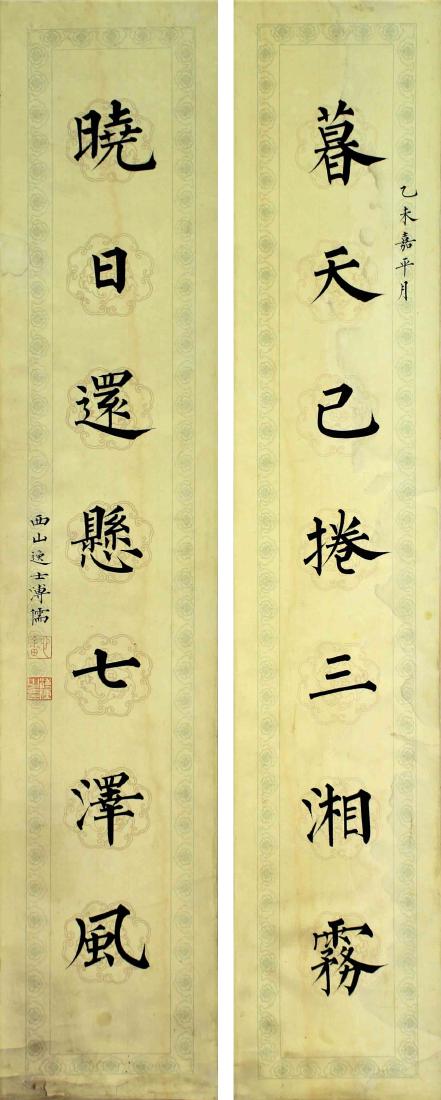 乙未嘉平月
暮天已捲三湘霧
曉日還懸七澤風
西山逸士溥儒